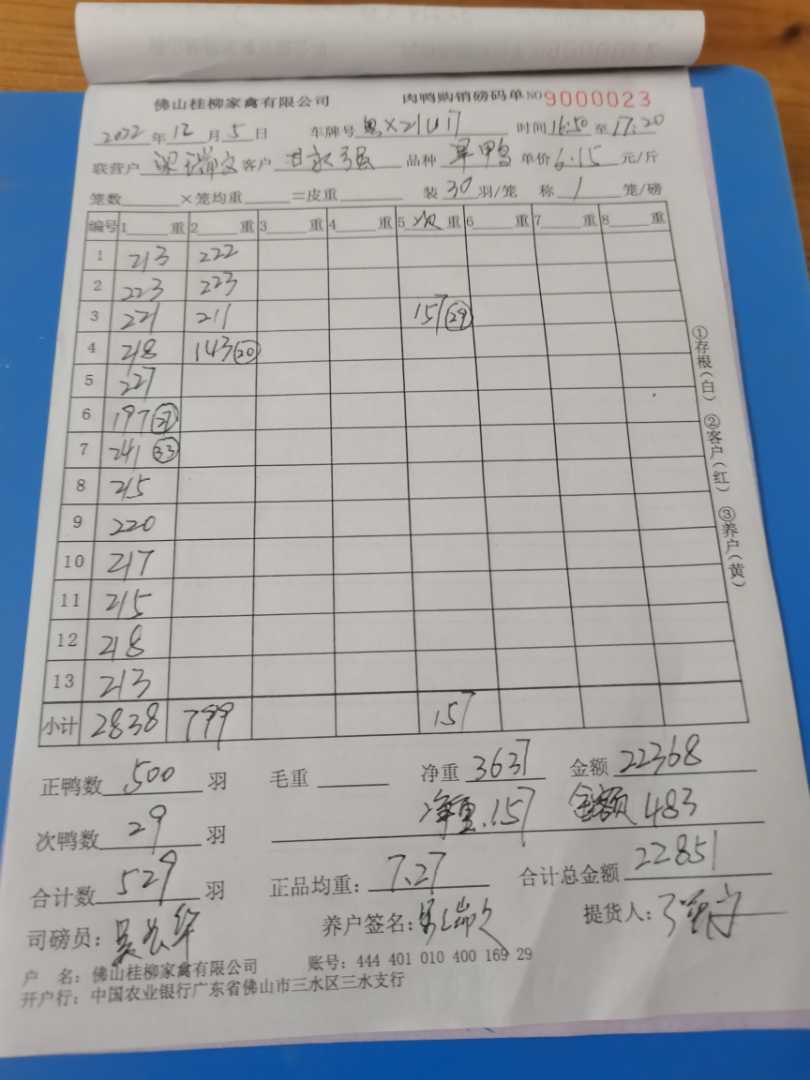 佛山桂柳家禽有限公司 肉鸭购销磅码单 NO 9000023
2022 年 12 月 5 日 车牌号 时间 16:50 至 17:20
联营户 客户 甘永强 品种 旱鸭 单价 6.15 元/斤
笼数 ×笼均重 =皮重 装 30 羽/笼 称 1 笼/磅
编号 1 重 2 重 3 重 4 重 5 次 重 6 重 7 重 8 重
1 213 222
2 223 223
3 221 211 157 (29)
4 218 143 (20)
5 227
6 197 (27)
7 241 (33)
8 215
9 220
10 217
11 215
12 218
13 213
小计 2838 799 157
正鸭数 500 羽 毛重 净重 3637 金额 22368
净重.157 金额 483
次鸭数 29 羽
合计数 529 羽 正品均重: 7.27 合计总金额 22851
司磅员: 养户签名: 提货人:
户 名: 佛山桂柳家禽有限公司 账号: 444 401 010 400 169 29
开户行: 中国农业银行广东省佛山市三水区三水支行
①存根(白) ②客户(红) ③养户(黄)